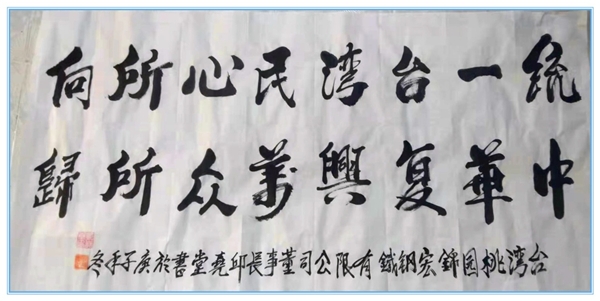 统一台湾民心所向
中華复興萬众所歸
台湾桃园錦宏钢鐵有限公司董事長邱堯堂書於庚子年冬